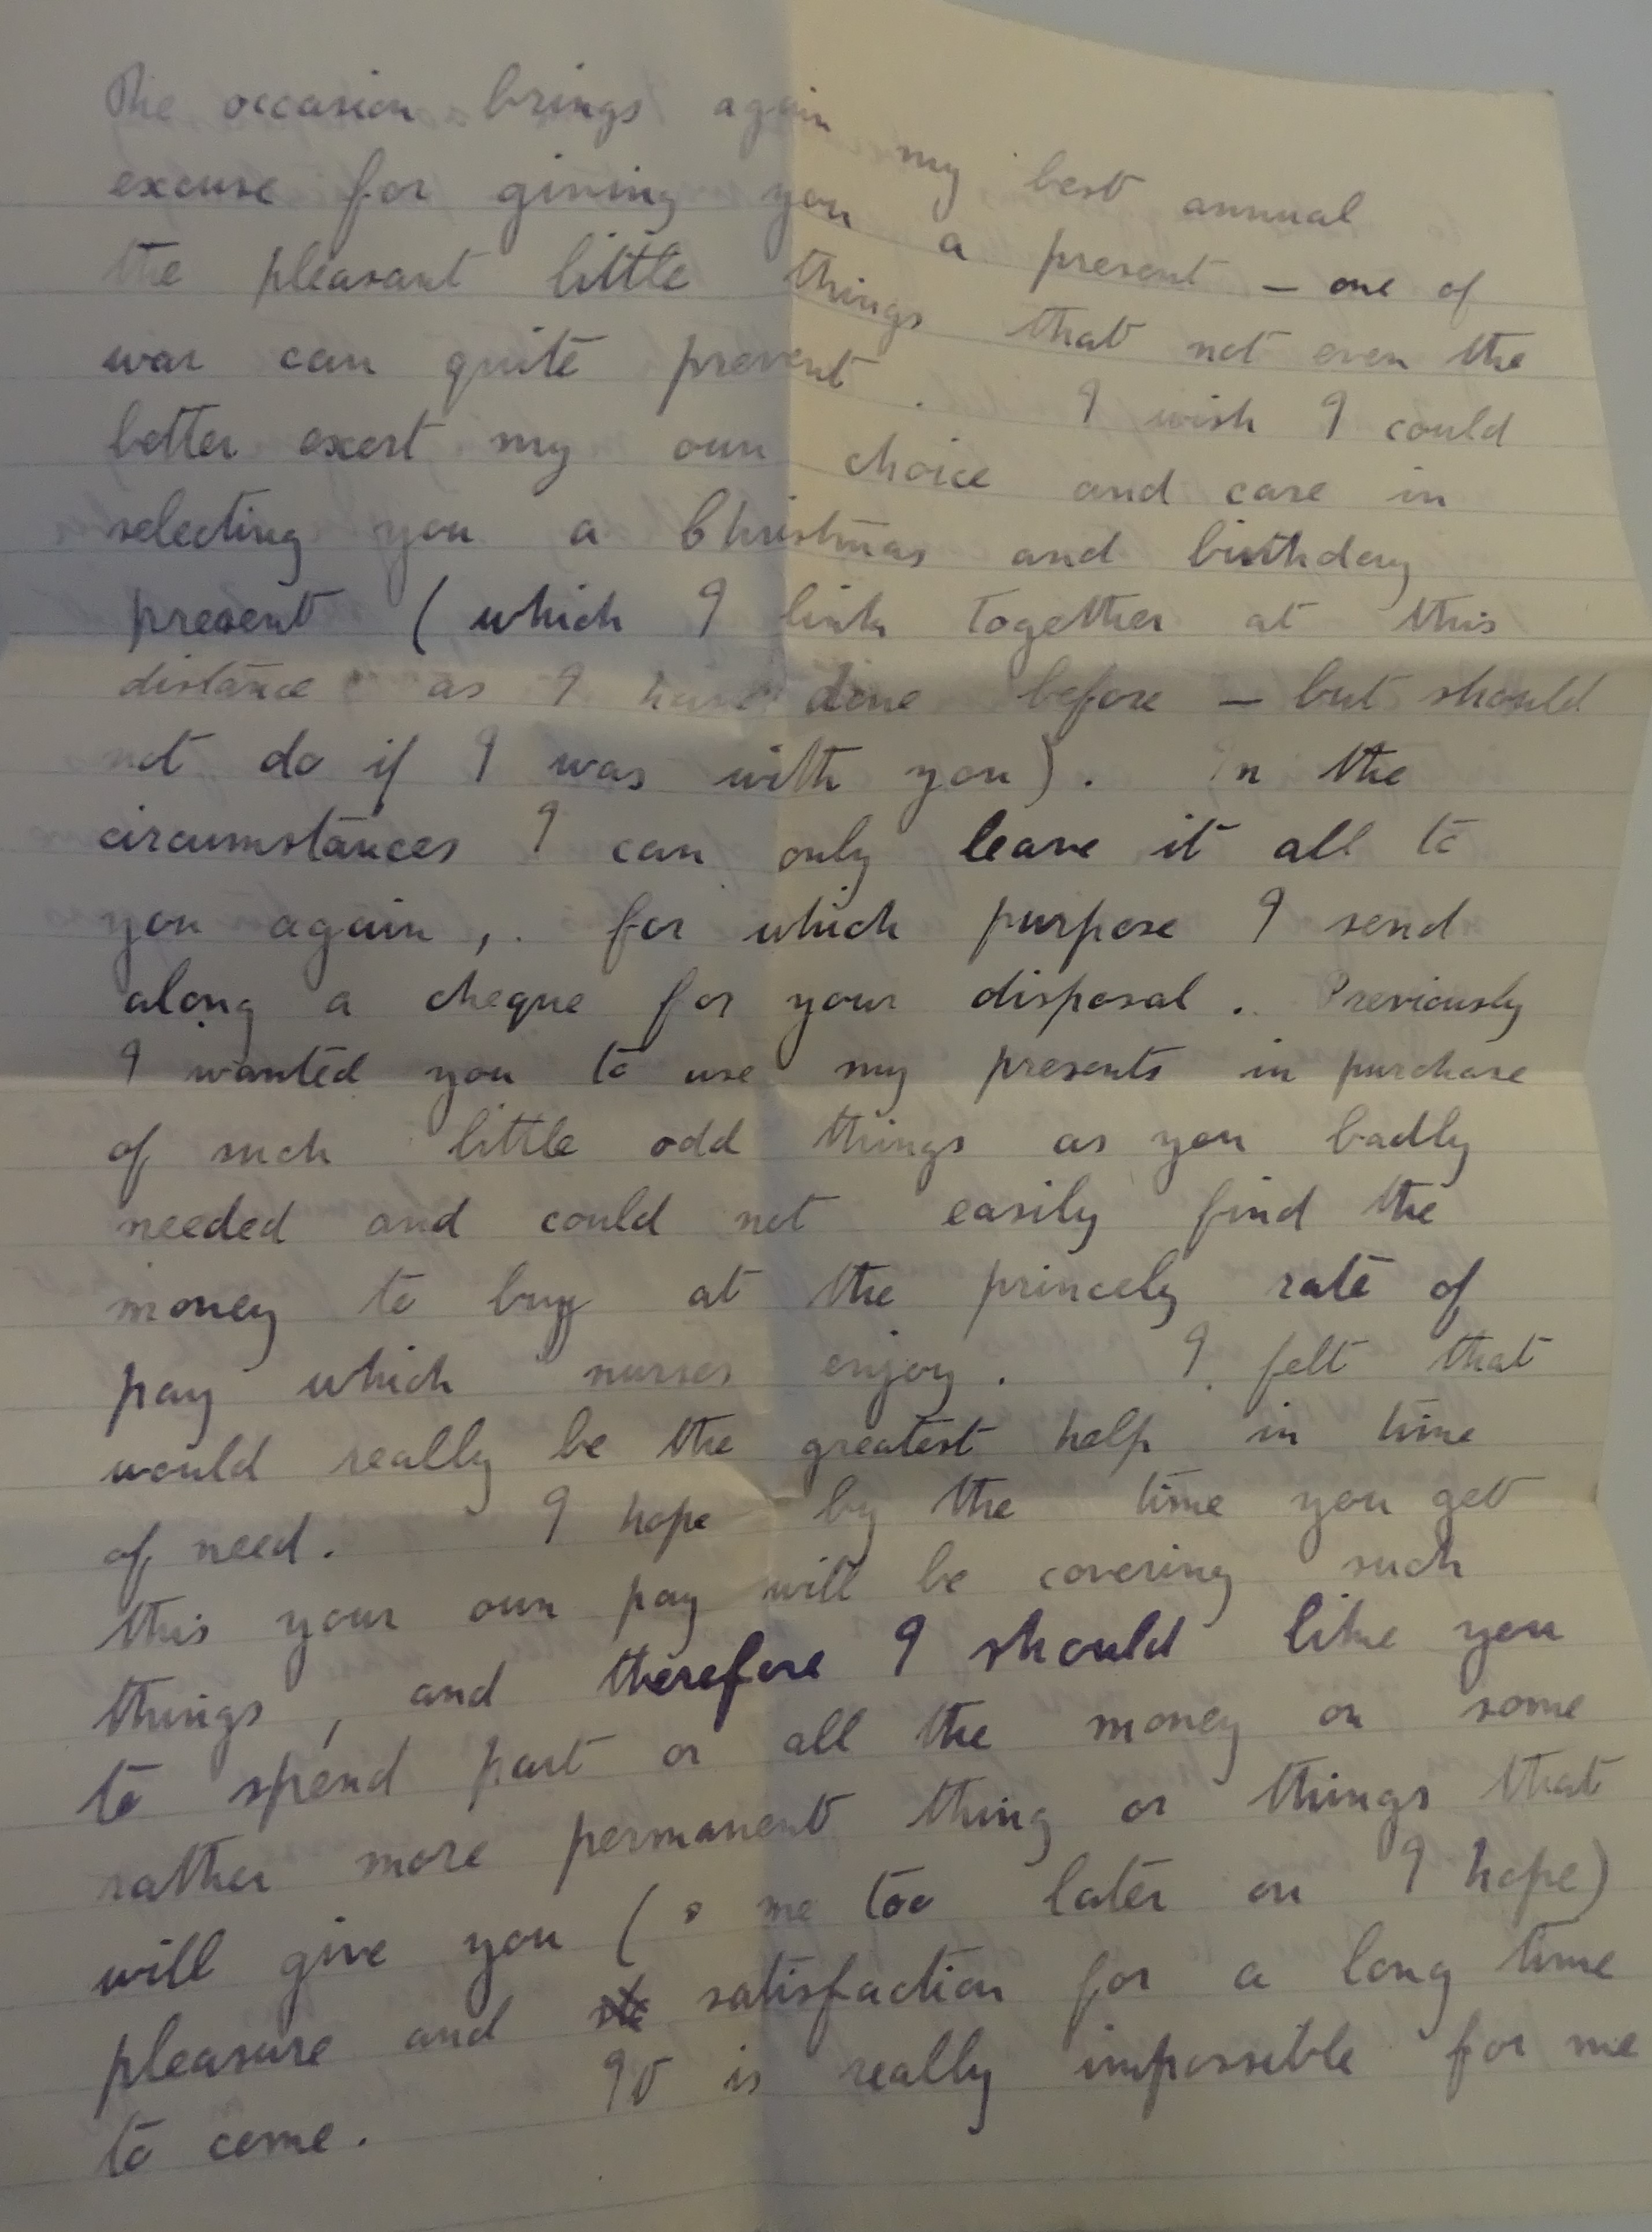 The occasion brings again my best annual
excuse for giving you a present – one of
the pleasant little things that not even the
war can quite prevent. I wish I could
better exert my own choice and care in
selecting you a Christmas and birthday
present (which I link together at this
distance as I have done before – but should
not do if I was with you). In the
circumstances I can only leave it all to
you again, . for which purpose I send
along a cheque for your disposal. Previously
I wanted you to use my presents in purchase
of such little odd things as you badly
needed and could not easily find the
money to buy at the princely rate of
pay which nurses enjoy. I felt that
would really be the greatest help in time
of need. I hope by the time you get
this your own pay will be covering such
things, and therefore I should like you
to spend part or all the money on some
rather more permanent thing or things that
will give you ( me too later on I hope)
pleasure and satisfaction for a long time
to come. It is really impossible for me